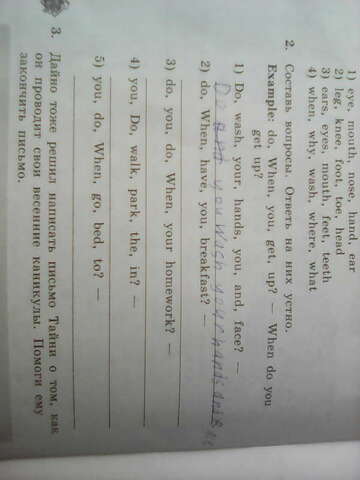 1) eye, mouth, nose, hand, ear
2) leg, knee, foot, toe, head
3) ears, eyes, mouth, feet, teeth
4) when, why, wash, where, what
2. Составь вопросы. Ответь на них устно.
Example: do, When, you, get, up? — When do you
get up?
1) Do, wash, your, hands, you, and, face? —
Do you wash your hands and
2) do, When, have, you, breakfast? —
3) do, you, do, When, your homework? —
4) you, Do, walk, park, the, in? —
5) you, do, When, go, bed, to? —
3. Дайно тоже решил написать письмо Тайни о том, как
он проводит свои весенние каникулы. Помоги ему
закончить письмо.